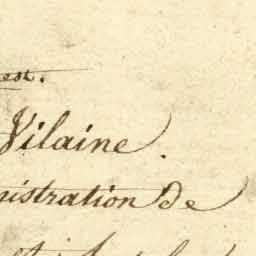 est.
Vilaine.
nistration de